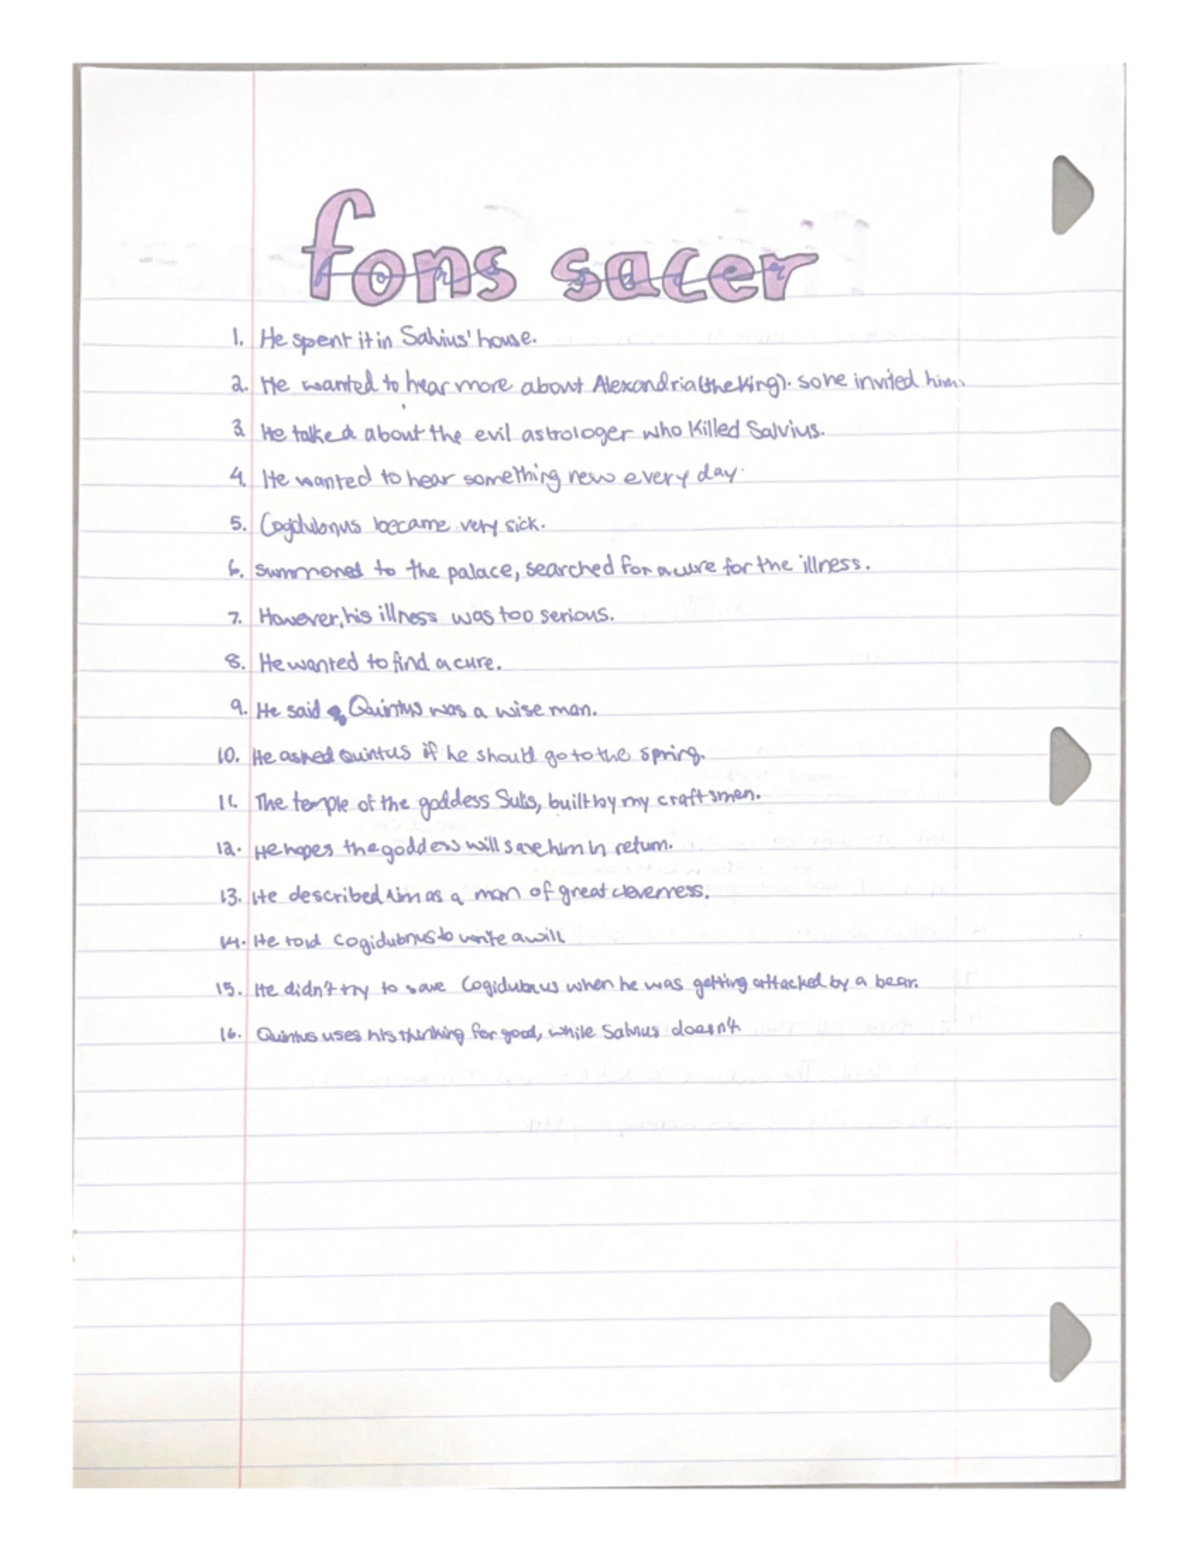 fons sacer
1. He spent it in Salvius' house.
2. He wanted to hear more about Alexandria (the King). so he invited him.
3. He talked about the evil astrologer who killed Salvius.
4. He wanted to hear something new every day.
5. Cogidubnus became very sick.
6. summoned to the palace, searched for a cure for the illness.
7. However, his illness was too serious.
8. He wanted to find a cure.
9. He said Quintus was a wise man.
10. He asked Quintus if he should go to the spring.
11. The temple of the goddess Sulis, built by my craftsmen.
12. He hopes the goddess will save him in return.
13. He described him as a man of great cleverness.
14. He told Cogidubnus to write a will
15. He didn't try to save Cogidubnus when he was getting attacked by a bear.
16. Quintus uses his thinking for good, while Salvius doesn't.